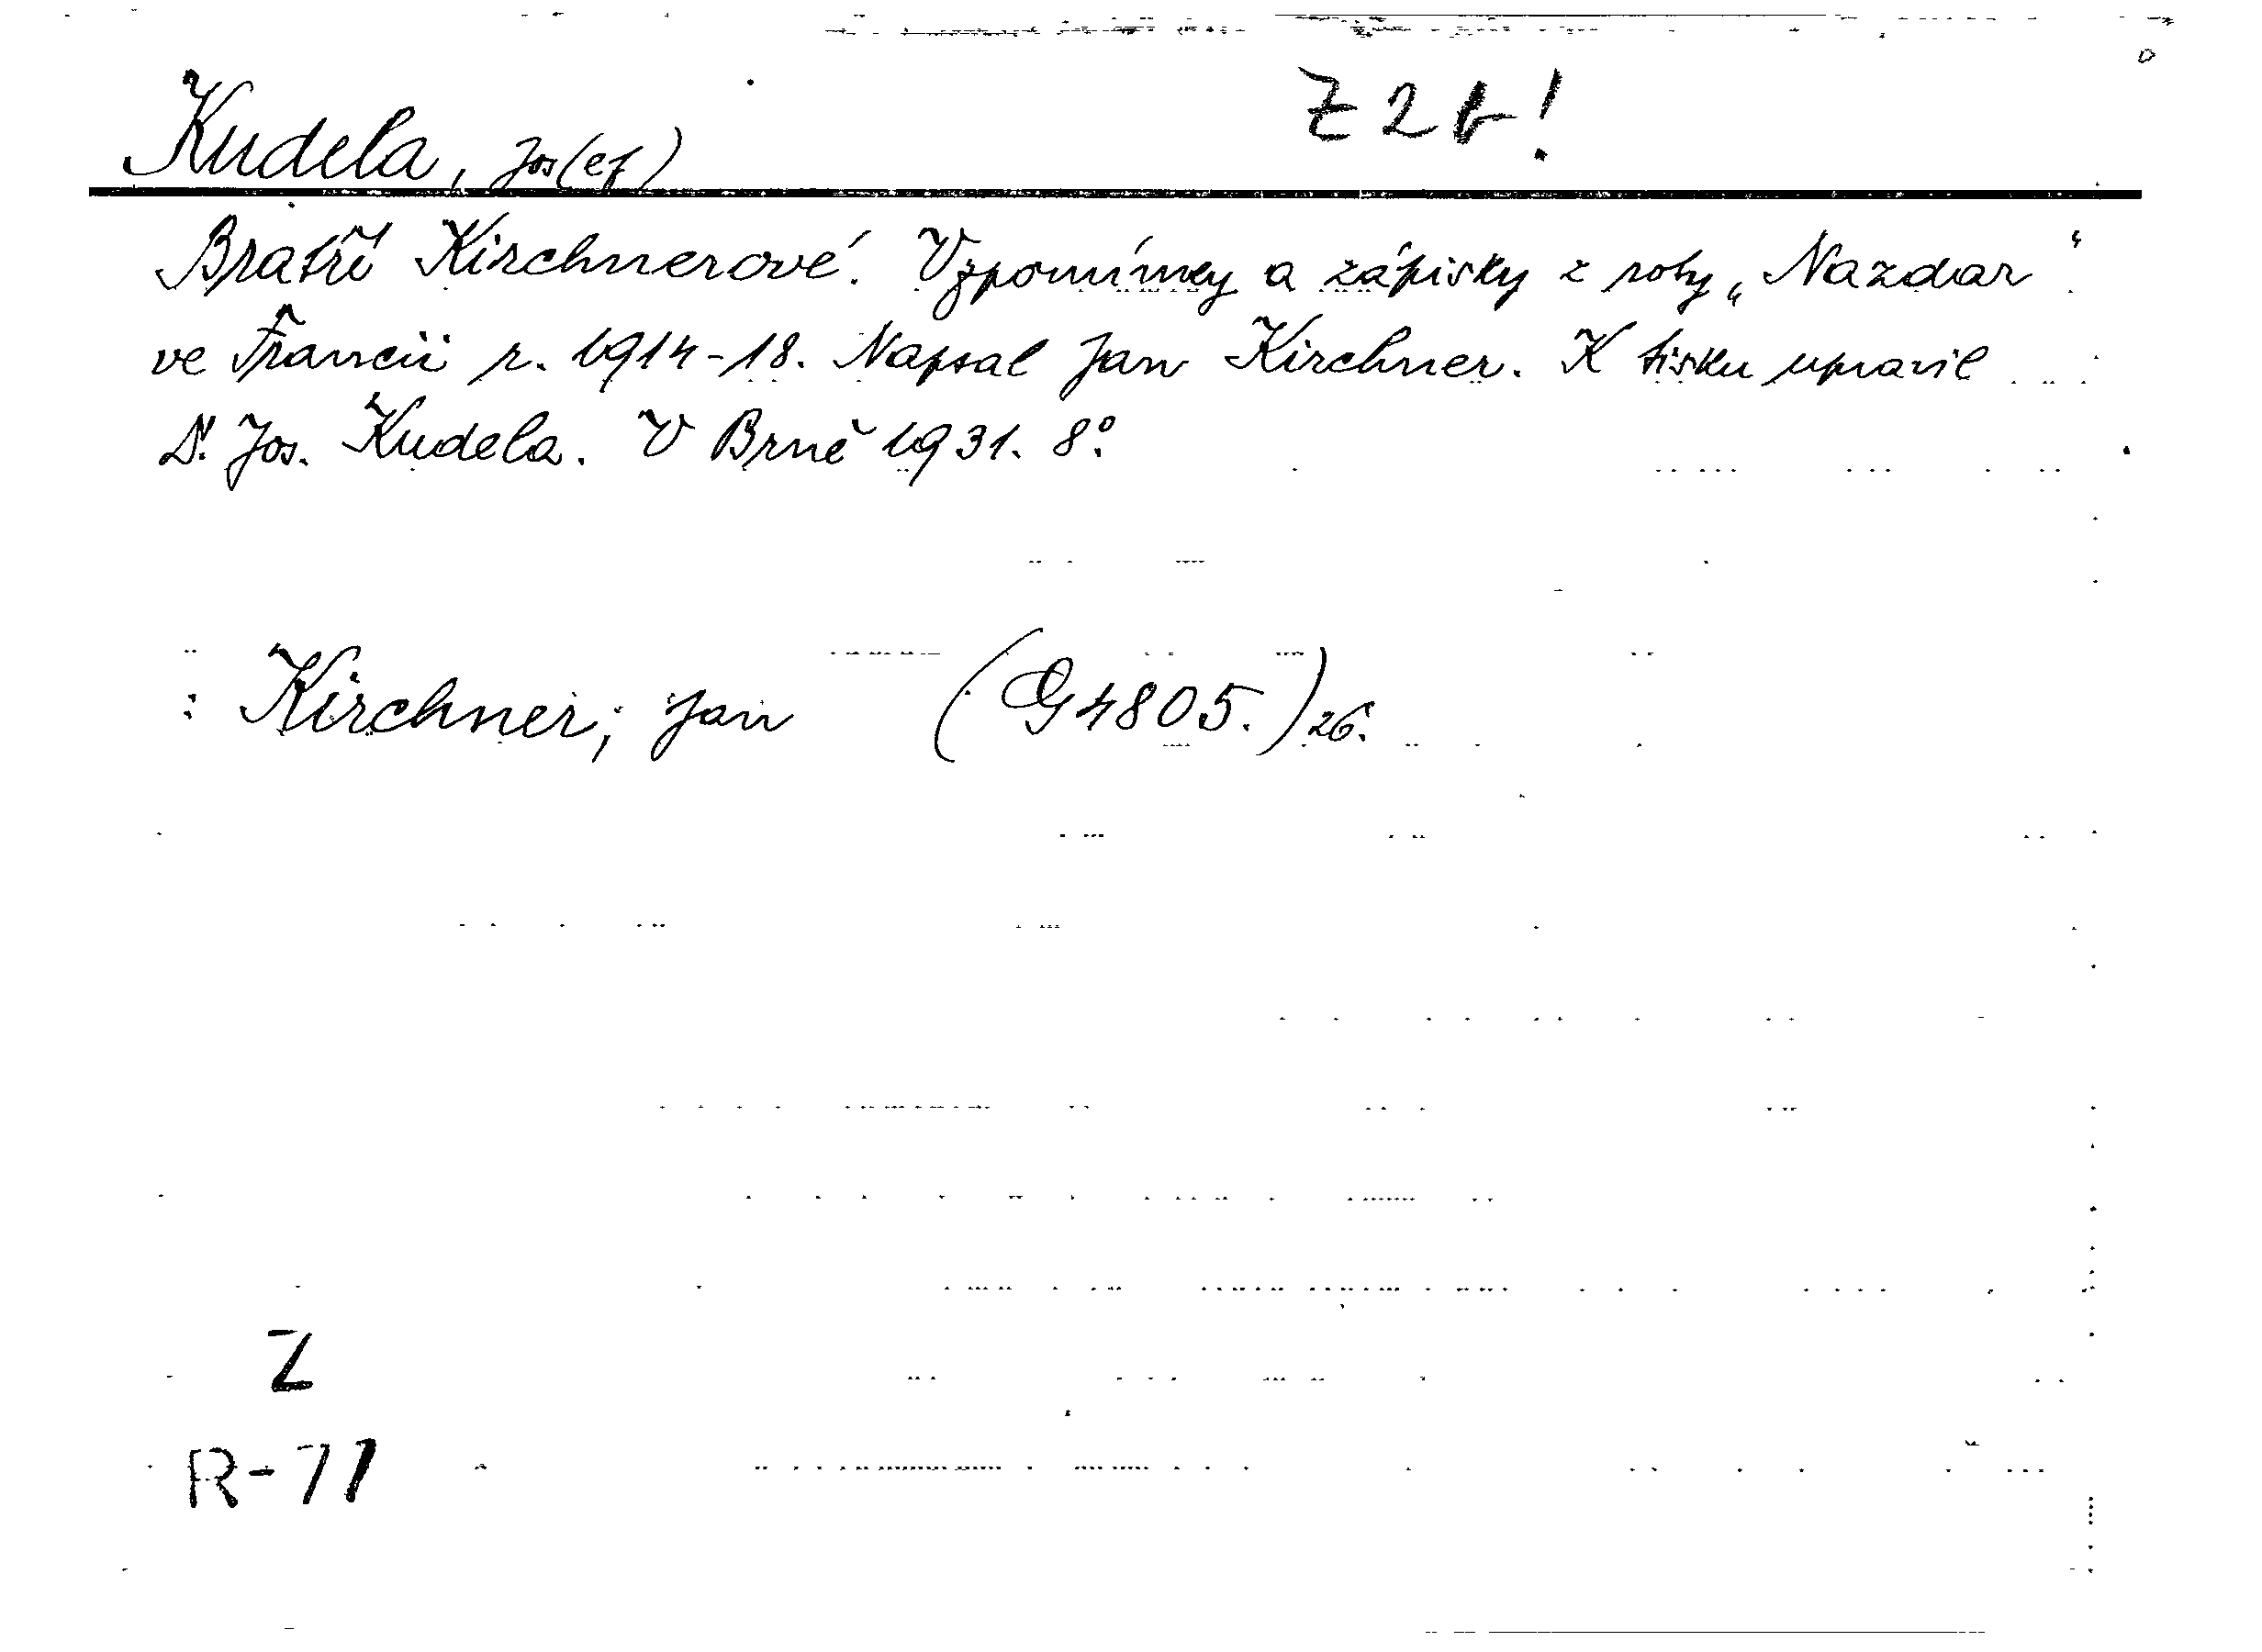 Kudela, Jos(ef)
Z 2 b!
Bratři Kirchnerové. Vzpomínky a zápisky z roty „Nazdar“
ve Francii r. 1914-18. Napsal Jan Kirchner. K tisku upravil
Dr. Jos. Kudela. V Brně 1931. 8°.
: Kirchner, Jan (G 4805.) 26.
Z
R-71